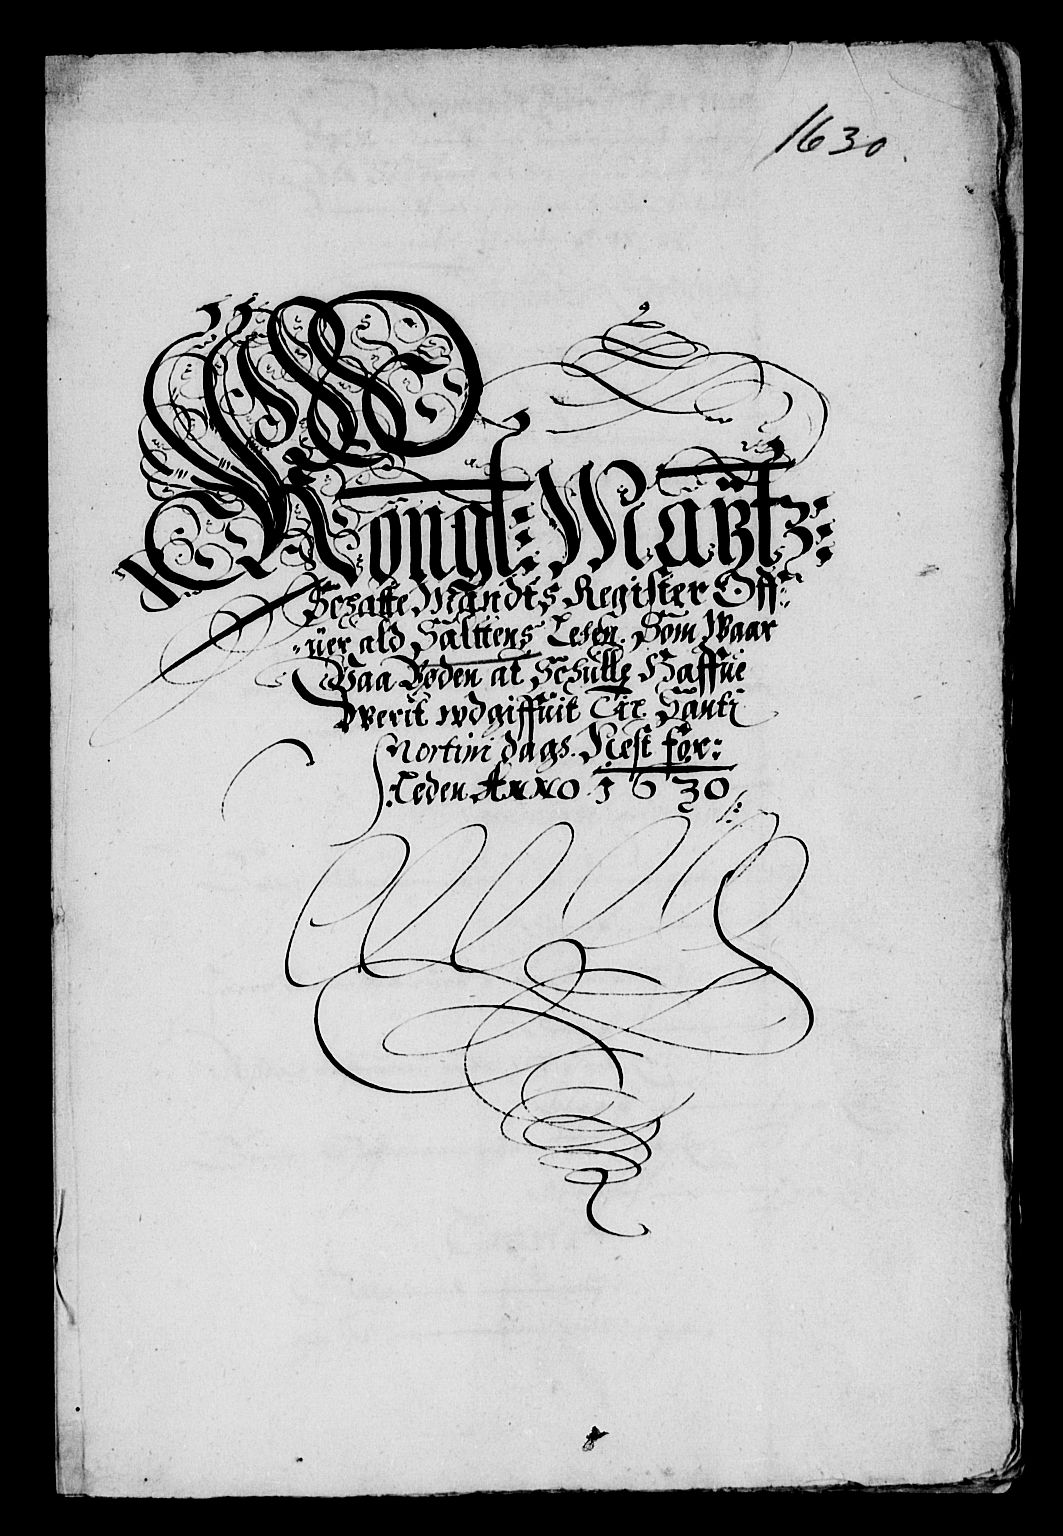 1630.
Kongl: Maÿtz:
Schatte Mandts Register Off:
:uer ald Salttens Lehen. Som Waar
Paa Böden at Schulle Haffue
Werit wdgiffuit Til Santi
Mortini dags. Nest for:
:Leden Anno 1630